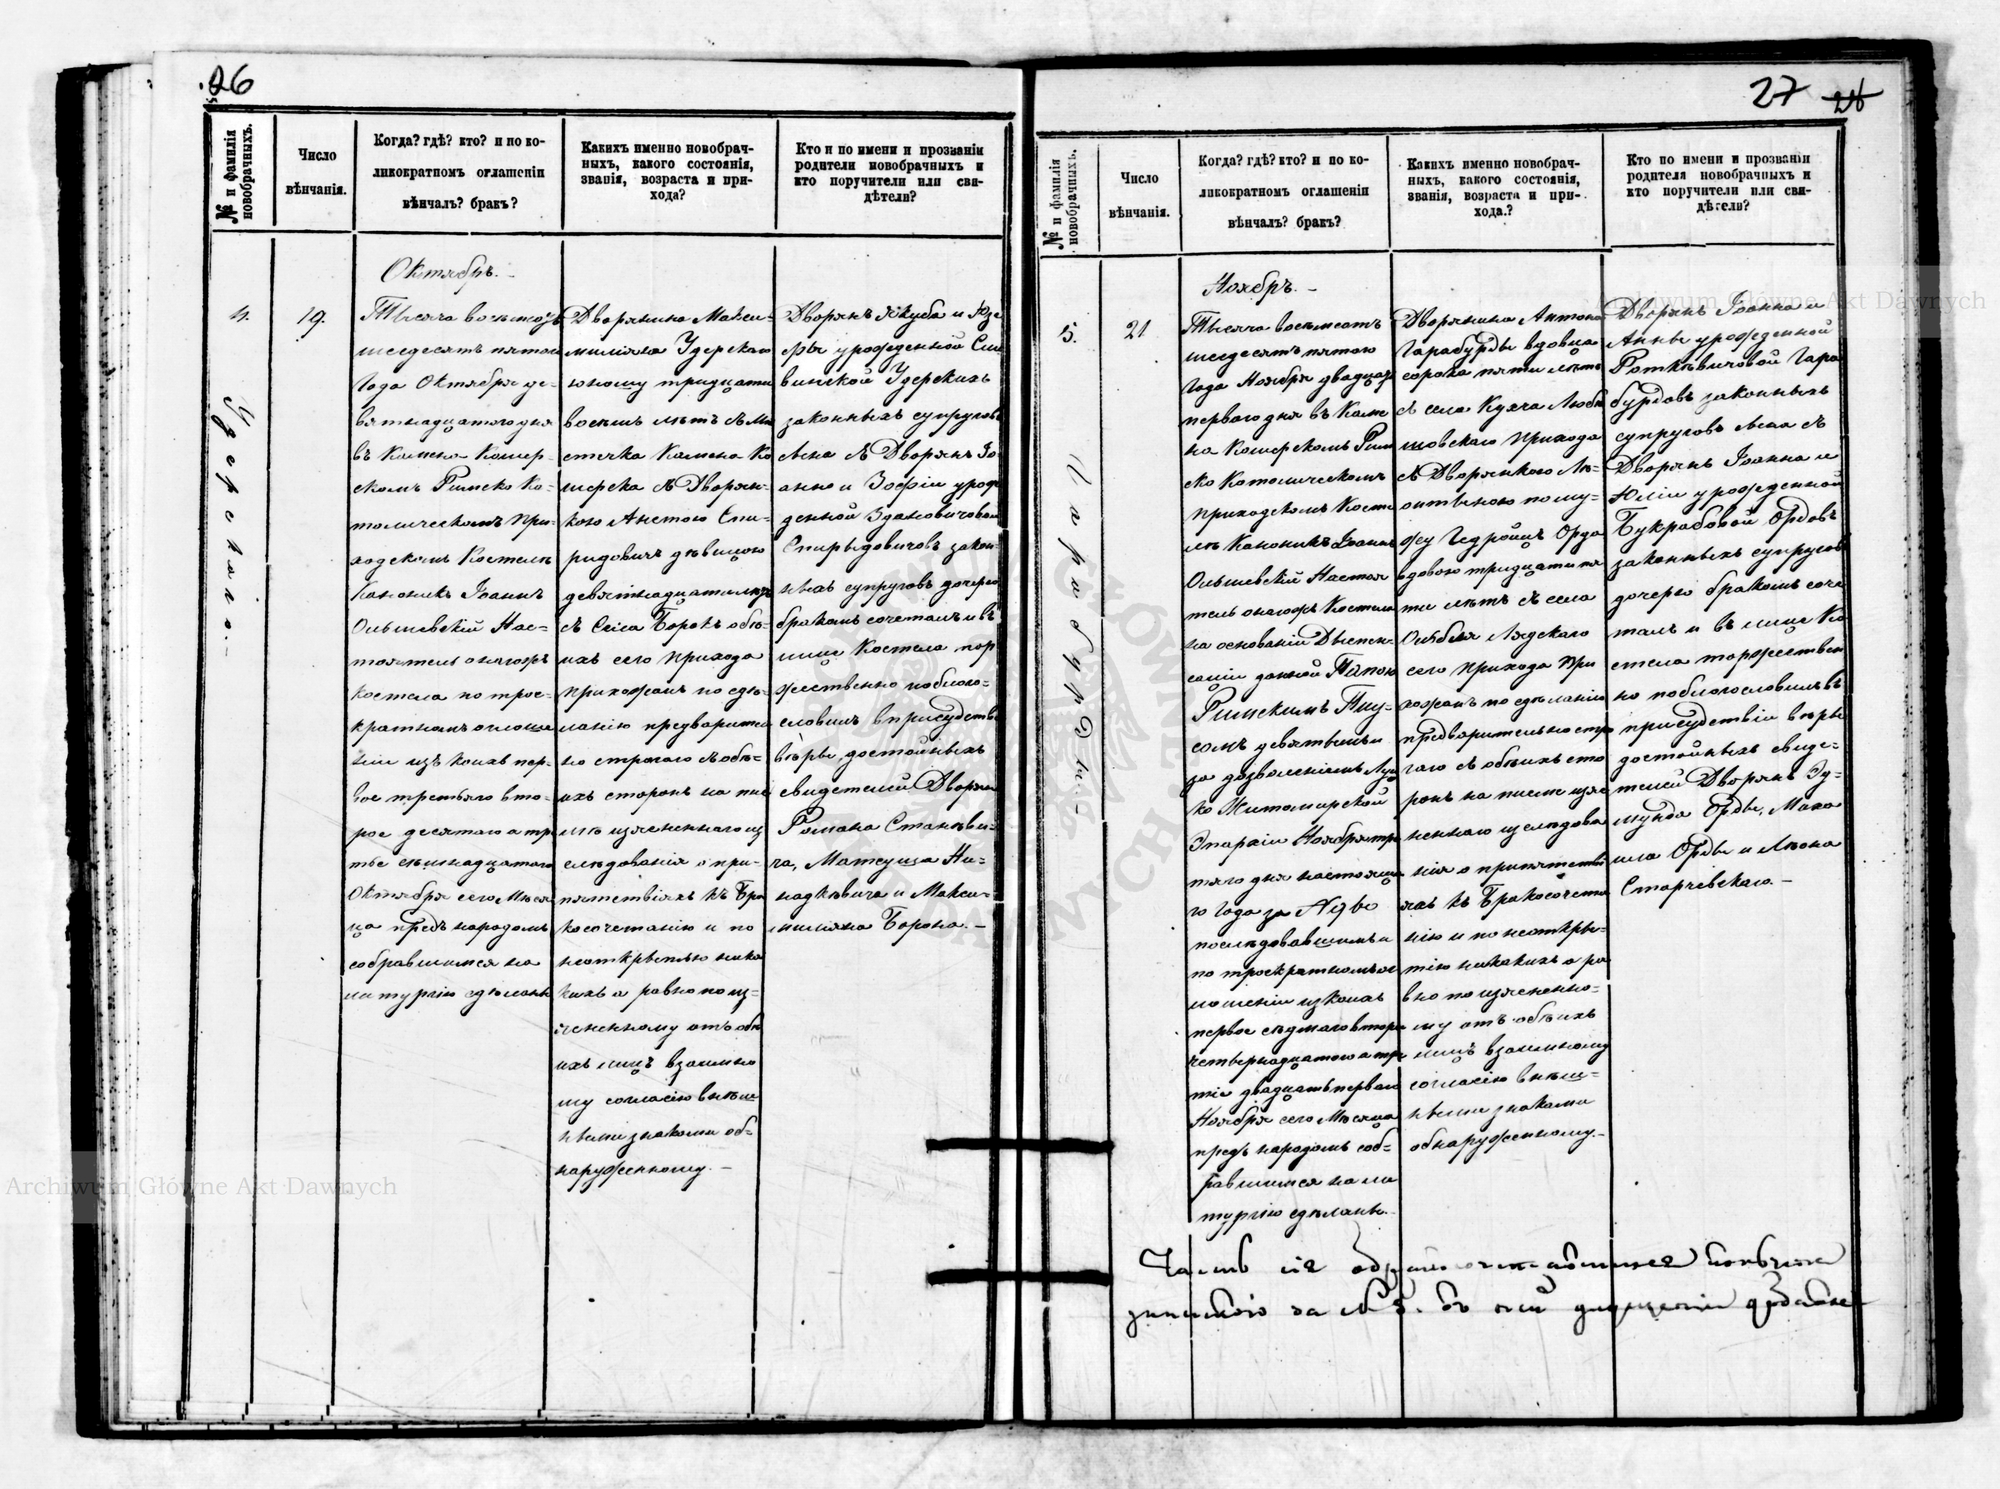 26
№ и фамилія новобрачныхъ.
Число
вѣнчанія.
Когда? гдѣ? кто? и по ко-
ликократномъ оглашеніи
вѣнчалъ? бракъ?
Какихъ именно новобрач-
ныхъ, какого состоянія,
званія, возраста и при-
хода?
Кто и по имени и прозваніи
родители новобрачныхъ и
кто поручители или сви-
дѣтели?
4.
19.
Октябрь.
Тысяча восемсотъ
шесдесятъ пятого
Года Октября де-
вятнадцатого дня
въ Камено Кошер-
скомъ Римско Ка-
толическомъ При-
ходскомъ Костелѣ
Каноникъ Іоаннъ
Ольшевскій Нас-
тоятель онагожъ
костела по трое-
кратномъ оглоше
ніи изъ коихъ пер-
вое третьяго вто-
рое десятого а тр
тье семнадцатого
Октября сего Мѣся
ца предъ народомъ
собравшимся на
литургію сдѣланы
Дворянина Макси-
миліяна Удерскаго
юношу тридцати
восемъ лѣтъ съ Мѣ
стечка Камена Ко
шерска съ Дворян-
кою Анетою Спи-
ридовичъ дѣвицою
девятнадцати лѣтъ
съ Села Боровъ обѣ-
ихъ сего Прихода
прихожанъ по сдѣ-
ланію предварител
но строгаго съ обѣ-
ихъ сторонъ на пис
мѣ изясненнаго из
слѣдованія о при-
пятствіяхъ къ Бра
косочетанію и по
неоткрытію ника
кихъ а равно по из-
ясненному отъ обѣ
ихъ лицъ взаимно
му согласію внѣш
ными знаками об-
наруженному. –
Дворянъ Якуба и Юзе
фы урожденной Сли
винской Удерскихъ
законныхъ супруговъ
сына съ Дворянъ Іо-
анна и Зофіи урож
денной Здановичовой
Спирыдовичовъ закон-
ныхъ супруговъ дочерю
бракомъ сочеталъ и въ
лице Костела тор
жественно поблого-
словилъ в присудствіи
вѣры достойныхъ
свидетелей Дворянъ
Романа Станкѣви-
ча, Матеуша На-
надкѣвича и Макси-
миліяна Борона. –
27
№ и фамилія новобрачныхъ.
Число
вѣнчанія.
Когда? гдѣ? кто? и по ко-
ликократномъ оглашеніи
вѣнчалъ? бракъ?
Какихъ именно новобрач-
ныхъ, какого состоянія,
званія, возраста и при-
хода.?
Кто по имени и прозваніи
родителя новобрачныхъ и
кто поручители или сви-
дѣтели?
5.
21
Ноябрь. –
Тысяча восемсотъ
шесдесятъ пятого
Года Ноября двадцать
первого дня въ Каме
но Кошерскомъ Рим
ско Католическомъ
Приходскомъ Косте
лѣ Каноникъ Іоаннъ
Ольшевскій Настоя
тель онагожъ Костела
на основаніи Диспен-
саціи данной Папою
Римскимъ Пиу-
сомъ девятымъ и
за дозволеніемъ Луц
ко Житомирской
Эпархіи Ноября тре
тяго дня настояща
го Года за №
последовавшимъ и
по троекратномъ ог
лошеніи изъ коихъ
первое седмаго второе
четырнадцатого а тре
тіе двадцать первого
Ноября сего Мѣсяца
предъ народомъ соб-
равшимся на ли
тургію сдѣланы.
Дворянина Антона
Гарабурды вдовца
сорока пяти лѣтъ
съ села Кухча Любе
шовскаго прихода
съ Дворянкою Ле-
онтыною по му-
жу Гедройцъ Орда
вдовою тридцати пя
ти лѣтъ съ села
сего прихода При
хожанъ по сдѣланію
предварительно стро
гаго съ обѣихъ сто
ронъ на писмѣ изяс
неннаго изслѣдова
нія о припятстві
яхъ къ Бракосочета
нію и по неоткры-
тію никакихъ а ра
вно по изясненно-
му отъ обѣихъ
лицъ взаимному
согласію внѣш-
ными знаками
обнаруженному. –
Дворянъ Іоанна и
Анны урожденной
Роткѣвичовой Гара
бурдовъ законныхъ
супруговъ сына съ
Дворянъ Іоанна и
Юліи урожденной
Букрабовой Ордовъ
законныхъ супруговъ
дочерю бракомъ соче
талъ и въ лице Ко
стела торжествен
но поблогословилъ въ
присудствіи вѣры
достойныхъ свиде-
телей Дворянъ Зы-
мунда Орды, Миха
ила Орды и Леона
Старчевскаго. –
Archiwum Główne Akt Dawnych
Archiwum Główne Akt Dawnych